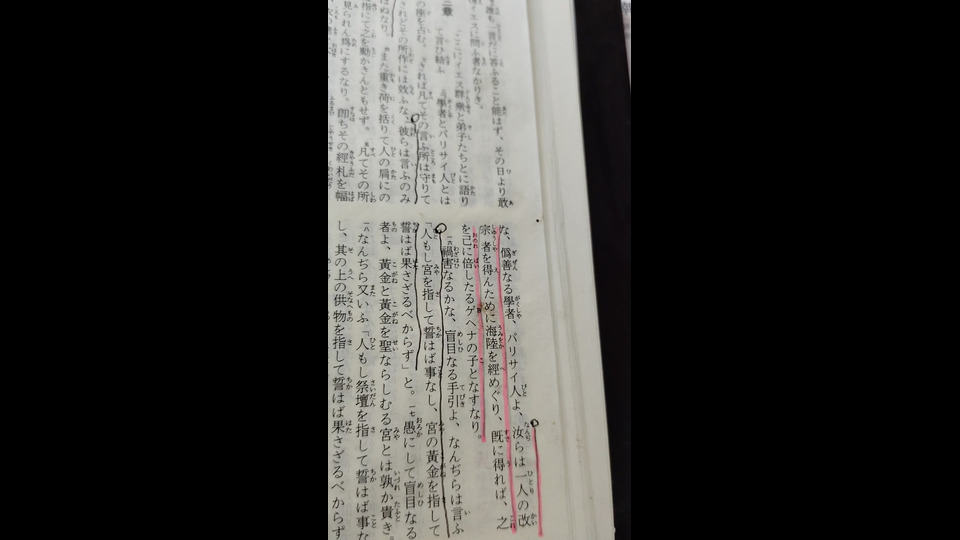 誰も一言だに答ふること能はず、その日より敢
イエスに問ふ者なかりき。
三章
ここにイエス群衆と弟子たちとに語り
て言ひ給ふ
學者とパリサイ人とは
の座を占む。されば凡てその言ふ所は守りて
されどその所作には效ふな、彼らは言ふのみ
はぬなり。また重き荷を括りて人の肩にの
指にて之を動かさんともせず。凡てその所
見られん爲にするなり。即ちその經札を幅
な、僞善なる學者、パリサイ人よ、汝らは一人の改
宗者を得んために海陸を經めぐり、既に得れば、之
を己に倍したるゲヘナの子となすなり。
一六禍害なるかな、盲目なる手引よ、なんぢらは言ふ
「人もし宮を指して誓はば事なし、宮の黄金を指して
誓はば果さざるべからず」と。一七愚にして盲目なる
者よ、黄金と黄金を聖ならしむる宮とは孰か貴き。
一八なんぢら又いふ「人もし祭壇を指して誓はば事な
し、其の上の供物を指して誓はば果さざるべからず